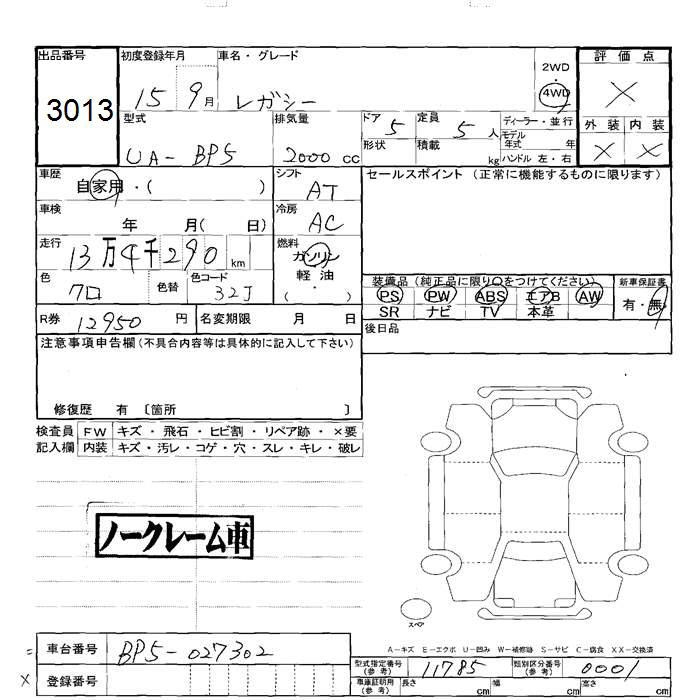 出品番号 初度登録年月 車名・グレード 2WD・4WD 評価点
3013 15 9月 レガシー ×
型式 排気量 ドア 5 定員 5人 ディーラー・並行 外装 内装
UA-BP5 2000cc 形状 積載 kg モデル年式 年 ハンドル 左・右 × ×
車歴 自家用・( ) シフト AT セールスポイント (正常に機能するものに限ります)
車検 年 月( 日) 冷房 AC
走行 13万4千290km 燃料 ガソリン
軽油
( ・ )
色 クロ 色替 色コード 32J
装備品 (純正品に限り○をつけてください) 新車保証書
PS PW ABS エアB AW 有・無
SR ナビ TV 本革
R券 12950円 名変期限 月 日 後日品
注意事項申告欄(不具合内容等は具体的に記入して下さい)
修復歴 有 〔箇所 〕
検査員 FW キズ・飛石・ヒビ割・リペア跡・×要
記入欄 内装 キズ・汚レ・コゲ・穴・スレ・キレ・破レ
ノークレーム車
スペア
A-キズ E-エクボ U-凹み W-補修跡 S-サビ C-腐食 XX-交換済
= 車台番号 BP5-027302
× 登録番号
型式指定番号(参考) 11785 類別区分番号(参考) 0001
車庫証明用(参考) 長さ cm 幅 cm 高さ cm